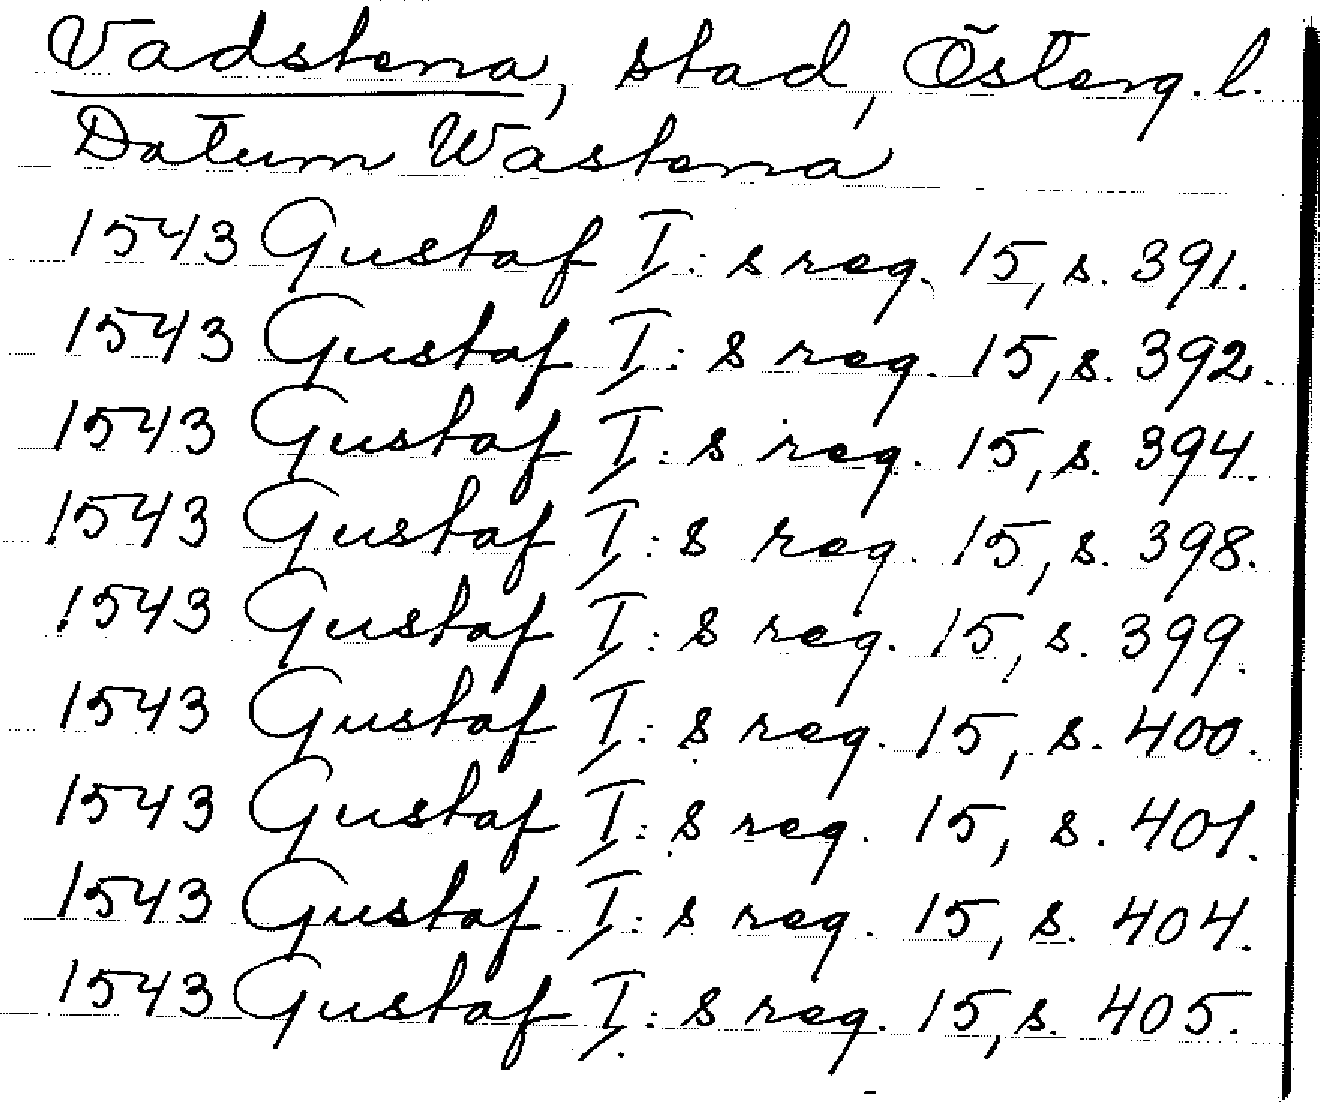 Vadstena, stad, Österg. l.
Datum Wastena
1543 Gustaf I:s reg. 15, s. 391.
1543 Gustaf I:s reg. 15, s. 392.
1543 Gustaf I:s reg. 15, s. 394.
1543 Gustaf I:s reg. 15, s. 398.
1543 Gustaf I:s reg. 15, s. 399.
1543 Gustaf I:s reg. 15, s. 400.
1543 Gustaf I:s reg. 15, s. 401.
1543 Gustaf I:s reg. 15, s. 404.
1543 Gustaf I:s reg. 15, s. 405.